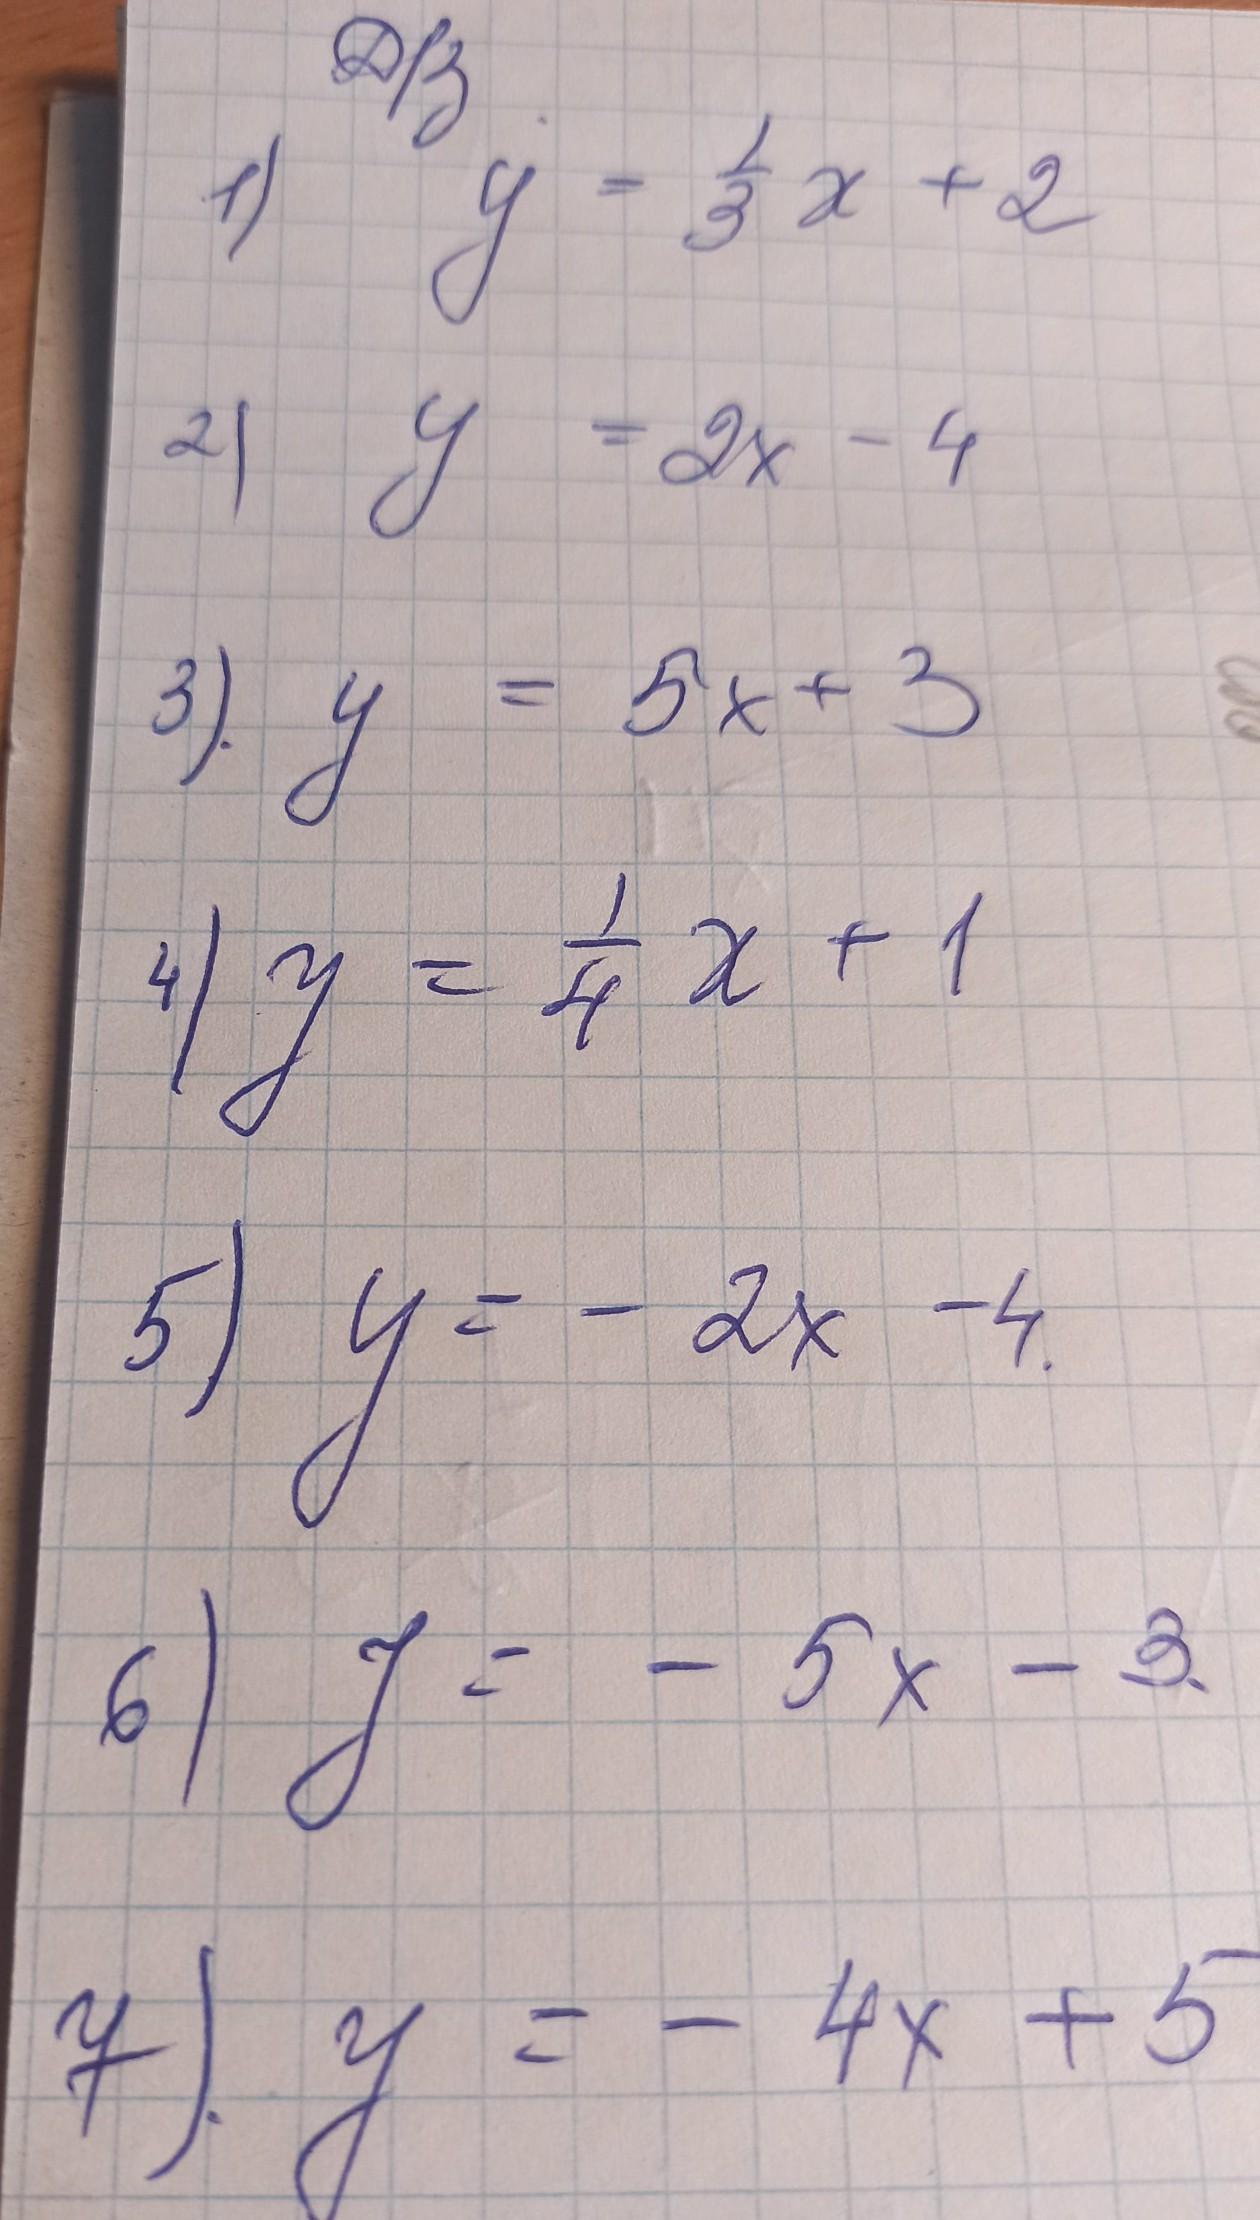 Д/З
1) y = 1/3 x + 2
2) y = 2x - 4
3). y = 5x + 3
4) y = 1/4 x + 1
5) y = - 2x - 4.
6) y = - 5x - 3.
7). y = - 4x + 5